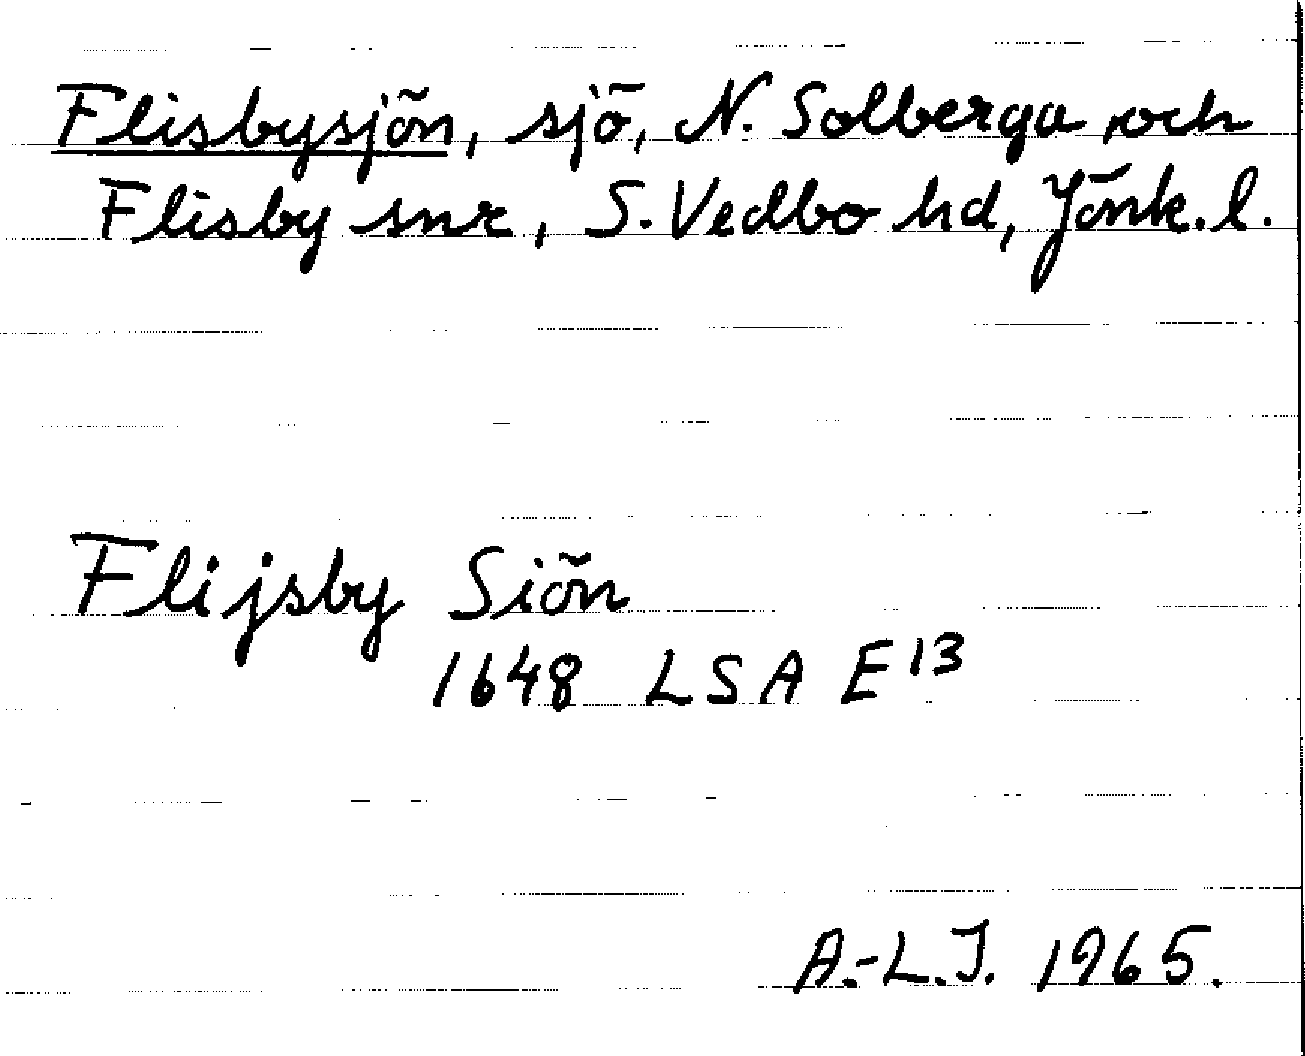 Flisbysjön, sjö, N. Solberga och
Flisby snr, S. Vedbo hd, Jönk. l.
Flijsby Siön
1648 LSA E 13
A.-L.J. 1965.